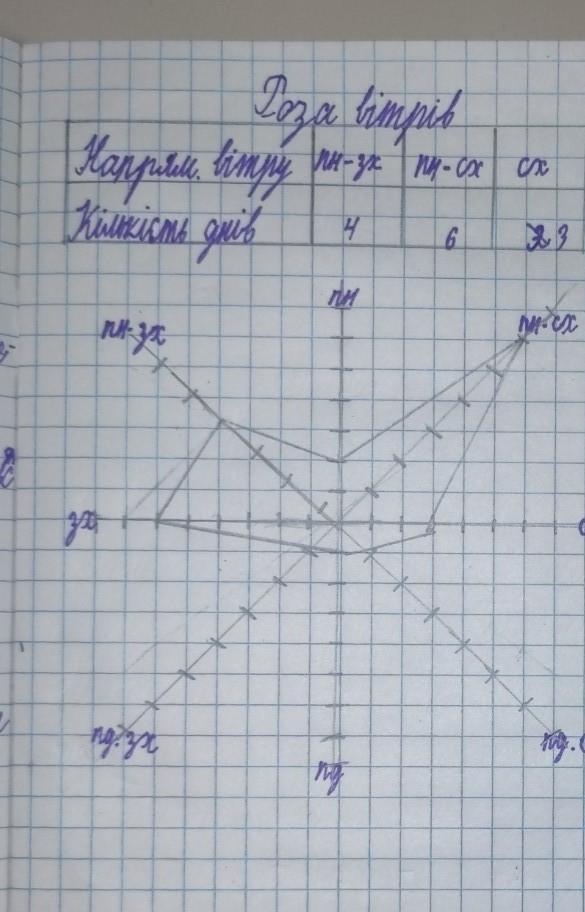 Роза вітрів
Напрям. вітру пн-зх пн-сх сх
Кількість днів 4 6 3
пн
пн-зх
пн-сх
зх
пд-зх
пд